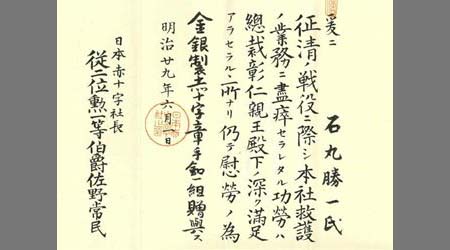 石丸勝一氏
爰ニ
征清ノ戦役ニ際シ本社救護
ノ業務ニ盡瘁セラレタル功勞ハ
總裁彰仁親王殿下ノ深ク滿足
アラセラルヽ所ナリ仍テ慰勞ノ為
金銀製赤十字章手釦一組贈與ス
明治廿九年六月 日
日本赤十字社長
従二位勲一等伯爵佐野常民